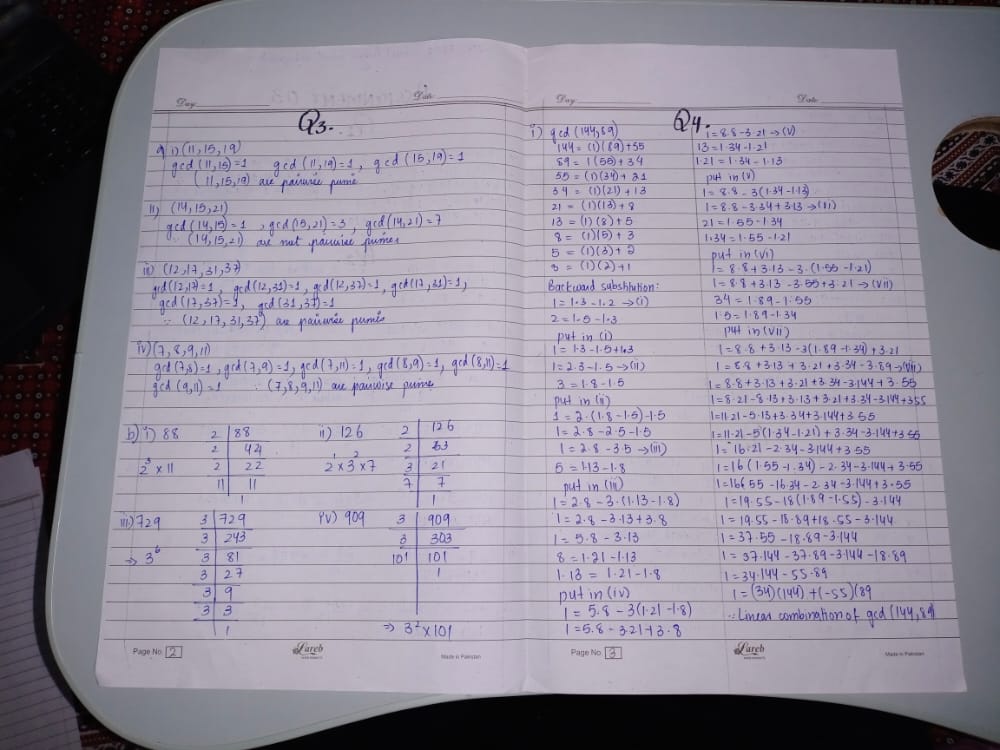 Day
Date
Q3.
a i) (11,15,19)
gcd (11,15)=1 gcd (11,19)=1, gcd (15,19)=1
(11,15,19) are pairwise prime
ii) (14,15,21)
gcd(14,15)=1, gcd(15,21)=3, gcd(14,21)=7
∵ (14,15,21) are not pairwise primes
iii) (12,17,31,37)
gcd(12,17)=1, gcd(12,31)=1, gcd(12,37)=1, gcd(17,31)=1,
gcd(17,37)=1, gcd(31,37)=1
∵ (12,17,31,37) are pairwise primes
iv) (7,8,9,11)
gcd(7,8)=1, gcd(7,9)=1, gcd(7,11)=1, gcd(8,9)=1, gcd(8,11)=1
gcd(9,11)=1 ∵ (7,8,9,11) are pairwise prime
b) i) 88
2 88
2 44
2 22
11 11
1
2³ x 11
ii) 126
2 126
2 63
3 21
7 7
1
2¹ x 3² x 7
iii) 729
3 729
3 243
3 81
3 27
3 9
3 3
1
⇒ 3⁶
iv) 909
3 909
3 303
101 101
1
⇒ 3² x 101
Page No. 2
Lareb
Made in Pakistan
Day
Date
Q4.
i) gcd (144,89)
144 = (1)(89)+55
89 = 1(55)+34
55 = (1)(34)+21
34 = (1)(21)+13
21 = (1)(13)+8
13 = (1)(8)+5
8 = (1)(5)+3
5 = (1)(3)+2
3 = (1)(2)+1
Backward substitution:
1=1·3-1·2 →(i)
2=1·5-1·3
put in (i)
1=1·3-1·5+1·3
1=2·3-1·5→(ii)
3=1·8-1·5
put in (ii)
1=2·(1·8-1·5)-1·5
1=2·8-2·5-1·5
1=2·8-3·5→(iii)
5=1·13-1·8
put in (iii)
1=2·8-3·(1·13-1·8)
1=2·8-3·13+3·8
1=5·8-3·13
8=1·21-1·13
1·13=1·21-1·8
put in (iv)
1=5·8-3(1·21-1·8)
1=5·8-3·21+3·8
1=8·8-3·21→(v)
13=1·34-1·21
1·21=1·34-1·13
put in (v)
1=8·8-3(1·34-1·13)
1=8·8-3·34+3·13→(vi)
21=1·55-1·34
1·34=1·55-1·21
put in (vi)
1=8·8+3·13-3·(1·55-1·21)
1=8·8+3·13-3·55+3·21→(vii)
34=1·89-1·55
1·5=1·89-1·34
put in (vii)
1=8·8+3·13-3(1·89-1·34)+3·21
1=8·8+3·13+3·21+3·34-3·89→(viii)
1=8·8+3·13+3·21+3·34-3·144+3·55
1=8·21-8·13+3·13+3·21+3·34-3·144+3·55
1=11·21-5·13+3·34+3·144+3·55
1=11·21-5(1·34-1·21)+3·34-3·144+3·55
1=16·21-2·34-3·144+3·55
1=16(1·55-1·34)-2·34-3·144+3·55
1=16·55-16·34-2·34-3·144+3·55
1=19·55-18(1·89-1·55)-3·144
1=19·55-18·89+18·55-3·144
1=37·55-18·89-3·144
1=37·144-37·89-3·144-18·89
1=34·144-55·89
1=(34)(144)+(-55)(89
∵ Linear combination of gcd(144,89)
Page No. 3
Lareb
Made in Pakistan